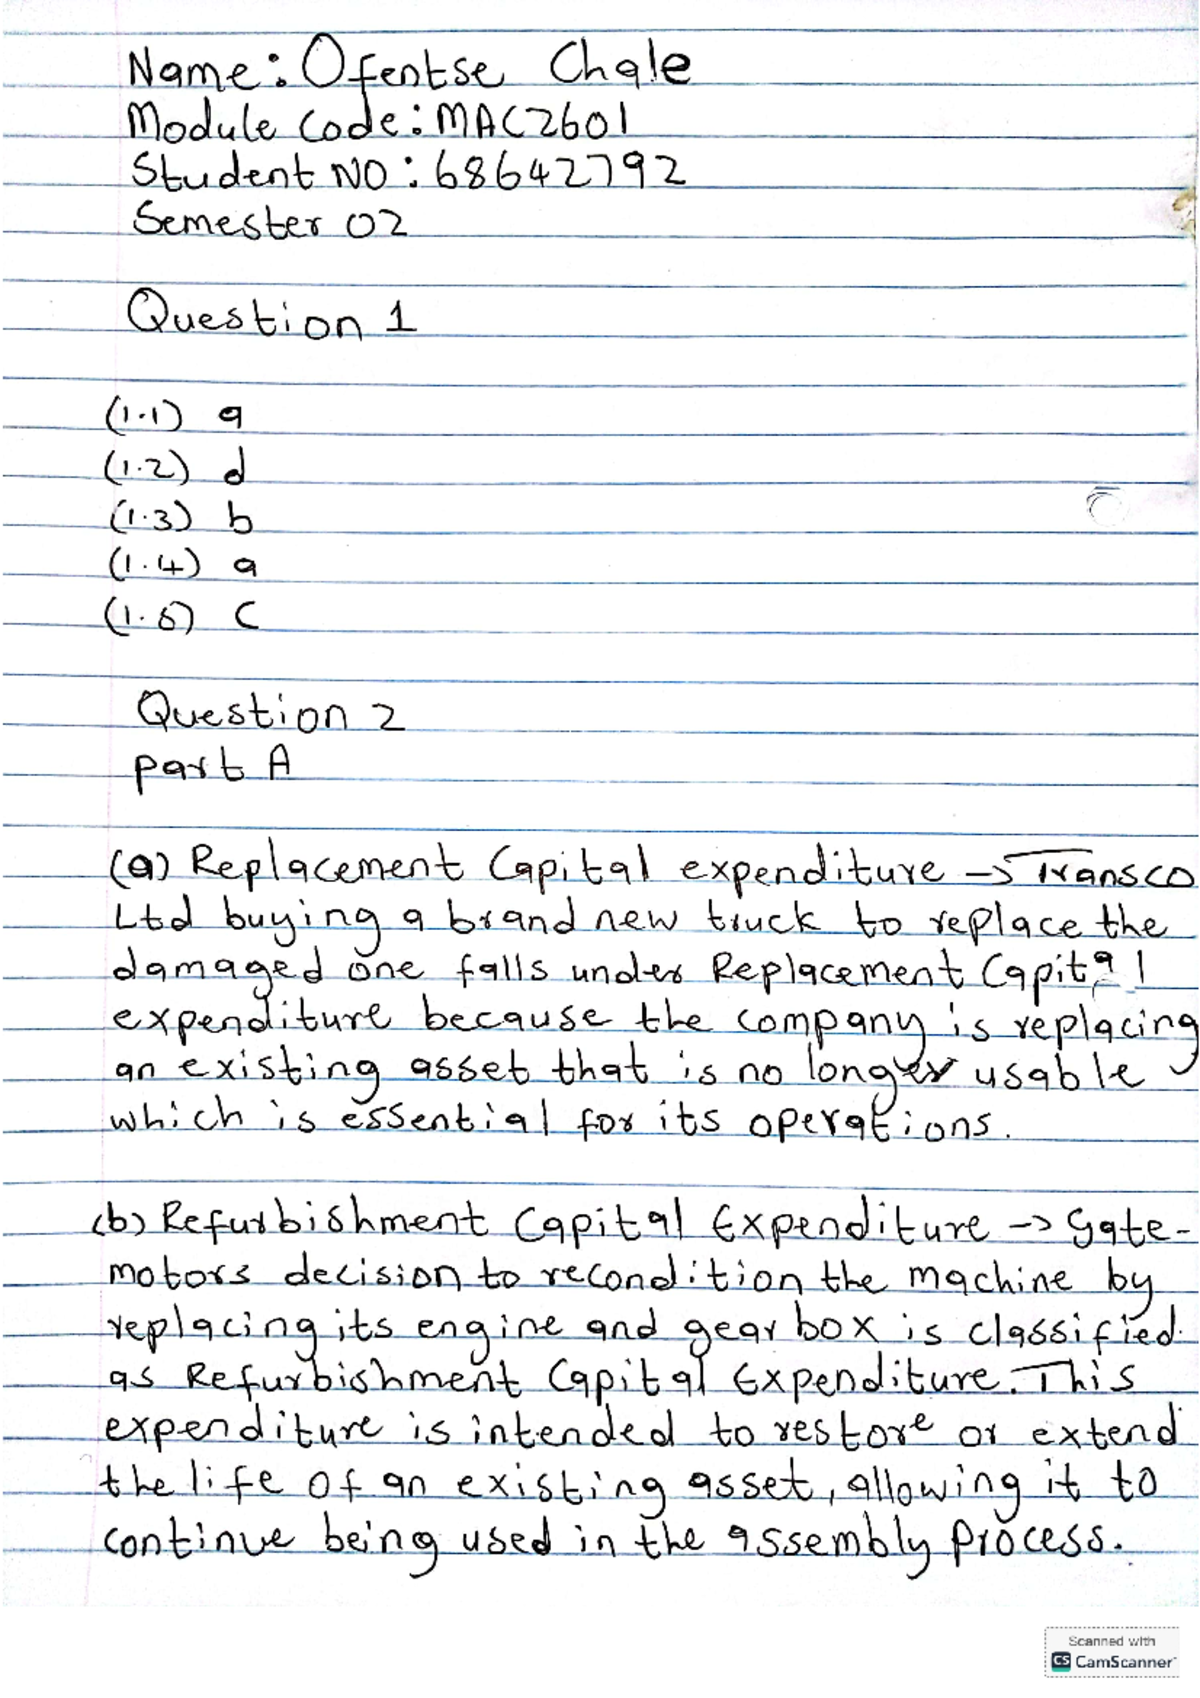 Name: Ofentse Chale
Module Code: MAC2601
Student NO: 68642792
Semester 02
Question 1
(1.1) a
(1.2) d
(1.3) b
(1.4) a
(1.5) C
Question 2
part A
(a) Replacement Capital expenditure → Transco
Ltd buying a brand new truck to replace the
damaged one falls under Replacement Capital
expenditure because the company is replacing
an existing asset that is no longer usable
which is essential for its operations.
(b) Refurbishment Capital Expenditure → Gate-
motors decision to recondition the machine by
replacing its engine and gear box is classified
as Refurbishment Capital Expenditure. This
expenditure is intended to restore or extend
the life of an existing asset, allowing it to
continue being used in the assembly process.
Scanned with
CS CamScanner